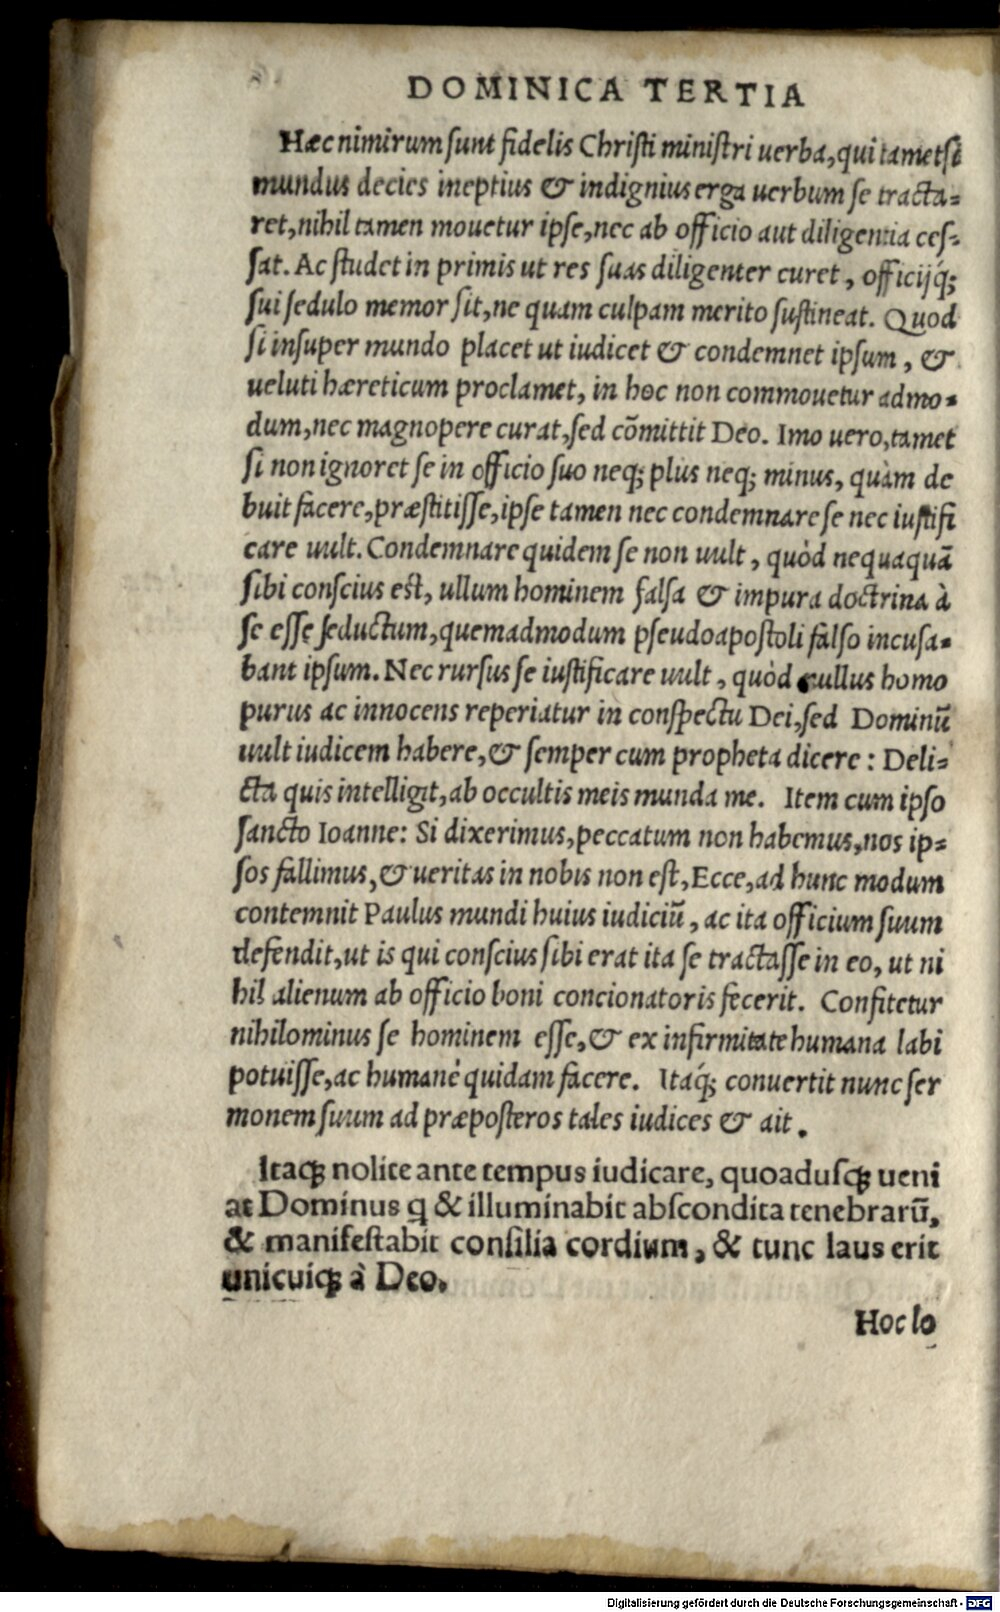 DOMINICA TERTIA
Hæc nimirum sunt fidelis Christi ministri uerba, qui tametsi
mundus decies ineptius & indignius erga uerbum se tracta=
ret, nihil tamen mouetur ipse, nec ab officio aut diligentia ces=
sat. Ac studet in primis ut res suas diligenter curet, officijq́;
sui sedulo memor sit, ne quam culpam merito sustineat. Quod
si insuper mundo placet ut iudicet & condemnet ipsum, &
ueluti hæreticum proclamet, in hoc non commouetur admo=
dum, nec magnopere curat, sed cõmittit Deo. Imo uero, tamet
si non ignoret se in officio suo neq; plus neq; minus, quàm de
buit facere, præstitisse, ipse tamen nec condemnare se nec iustifi
care uult. Condemnare quidem se non uult, quòd nequaquã
sibi conscius est, ullum hominem falsa & impura doctrina à
se esse seductum, quemadmodum pseudoapostoli falso incusa=
bant ipsum. Nec rursus se iustificare uult, quòd nullus homo
purus ac innocens reperiatur in conspectu Dei, sed Dominũ
uult iudicem habere, & semper cum propheta dicere: Deli=
cta quis intelligit, ab occultis meis munda me. Item cum ipso
sancto Ioanne: Si dixerimus, peccatum non habemus, nos ip=
sos fallimus, & ueritas in nobis non est, Ecce, ad hunc modum
contemnit Paulus mundi huius iudiciũ, ac ita officium suum
defendit, ut is qui conscius sibi erat ita se tractasse in eo, ut ni
hil alienum ab officio boni concionatoris fecerit. Confitetur
nihilominus se hominem esse, & ex infirmitate humana labi
potuisse, ac humanè quidam facere. Itaq́; conuertit nunc ser
monem suum ad præposteros tales iudices & ait.
Itaq; nolite ante tempus iudicare, quoadusq; ueni
at Dominus q & illuminabit abscondita tenebrarũ,
& manifestabit consilia cordium, & tunc laus erit
unicuiq; à Deo.
Hoc lo
Digitalisierung gefördert durch die Deutsche Forschungsgemeinschaft - DFG